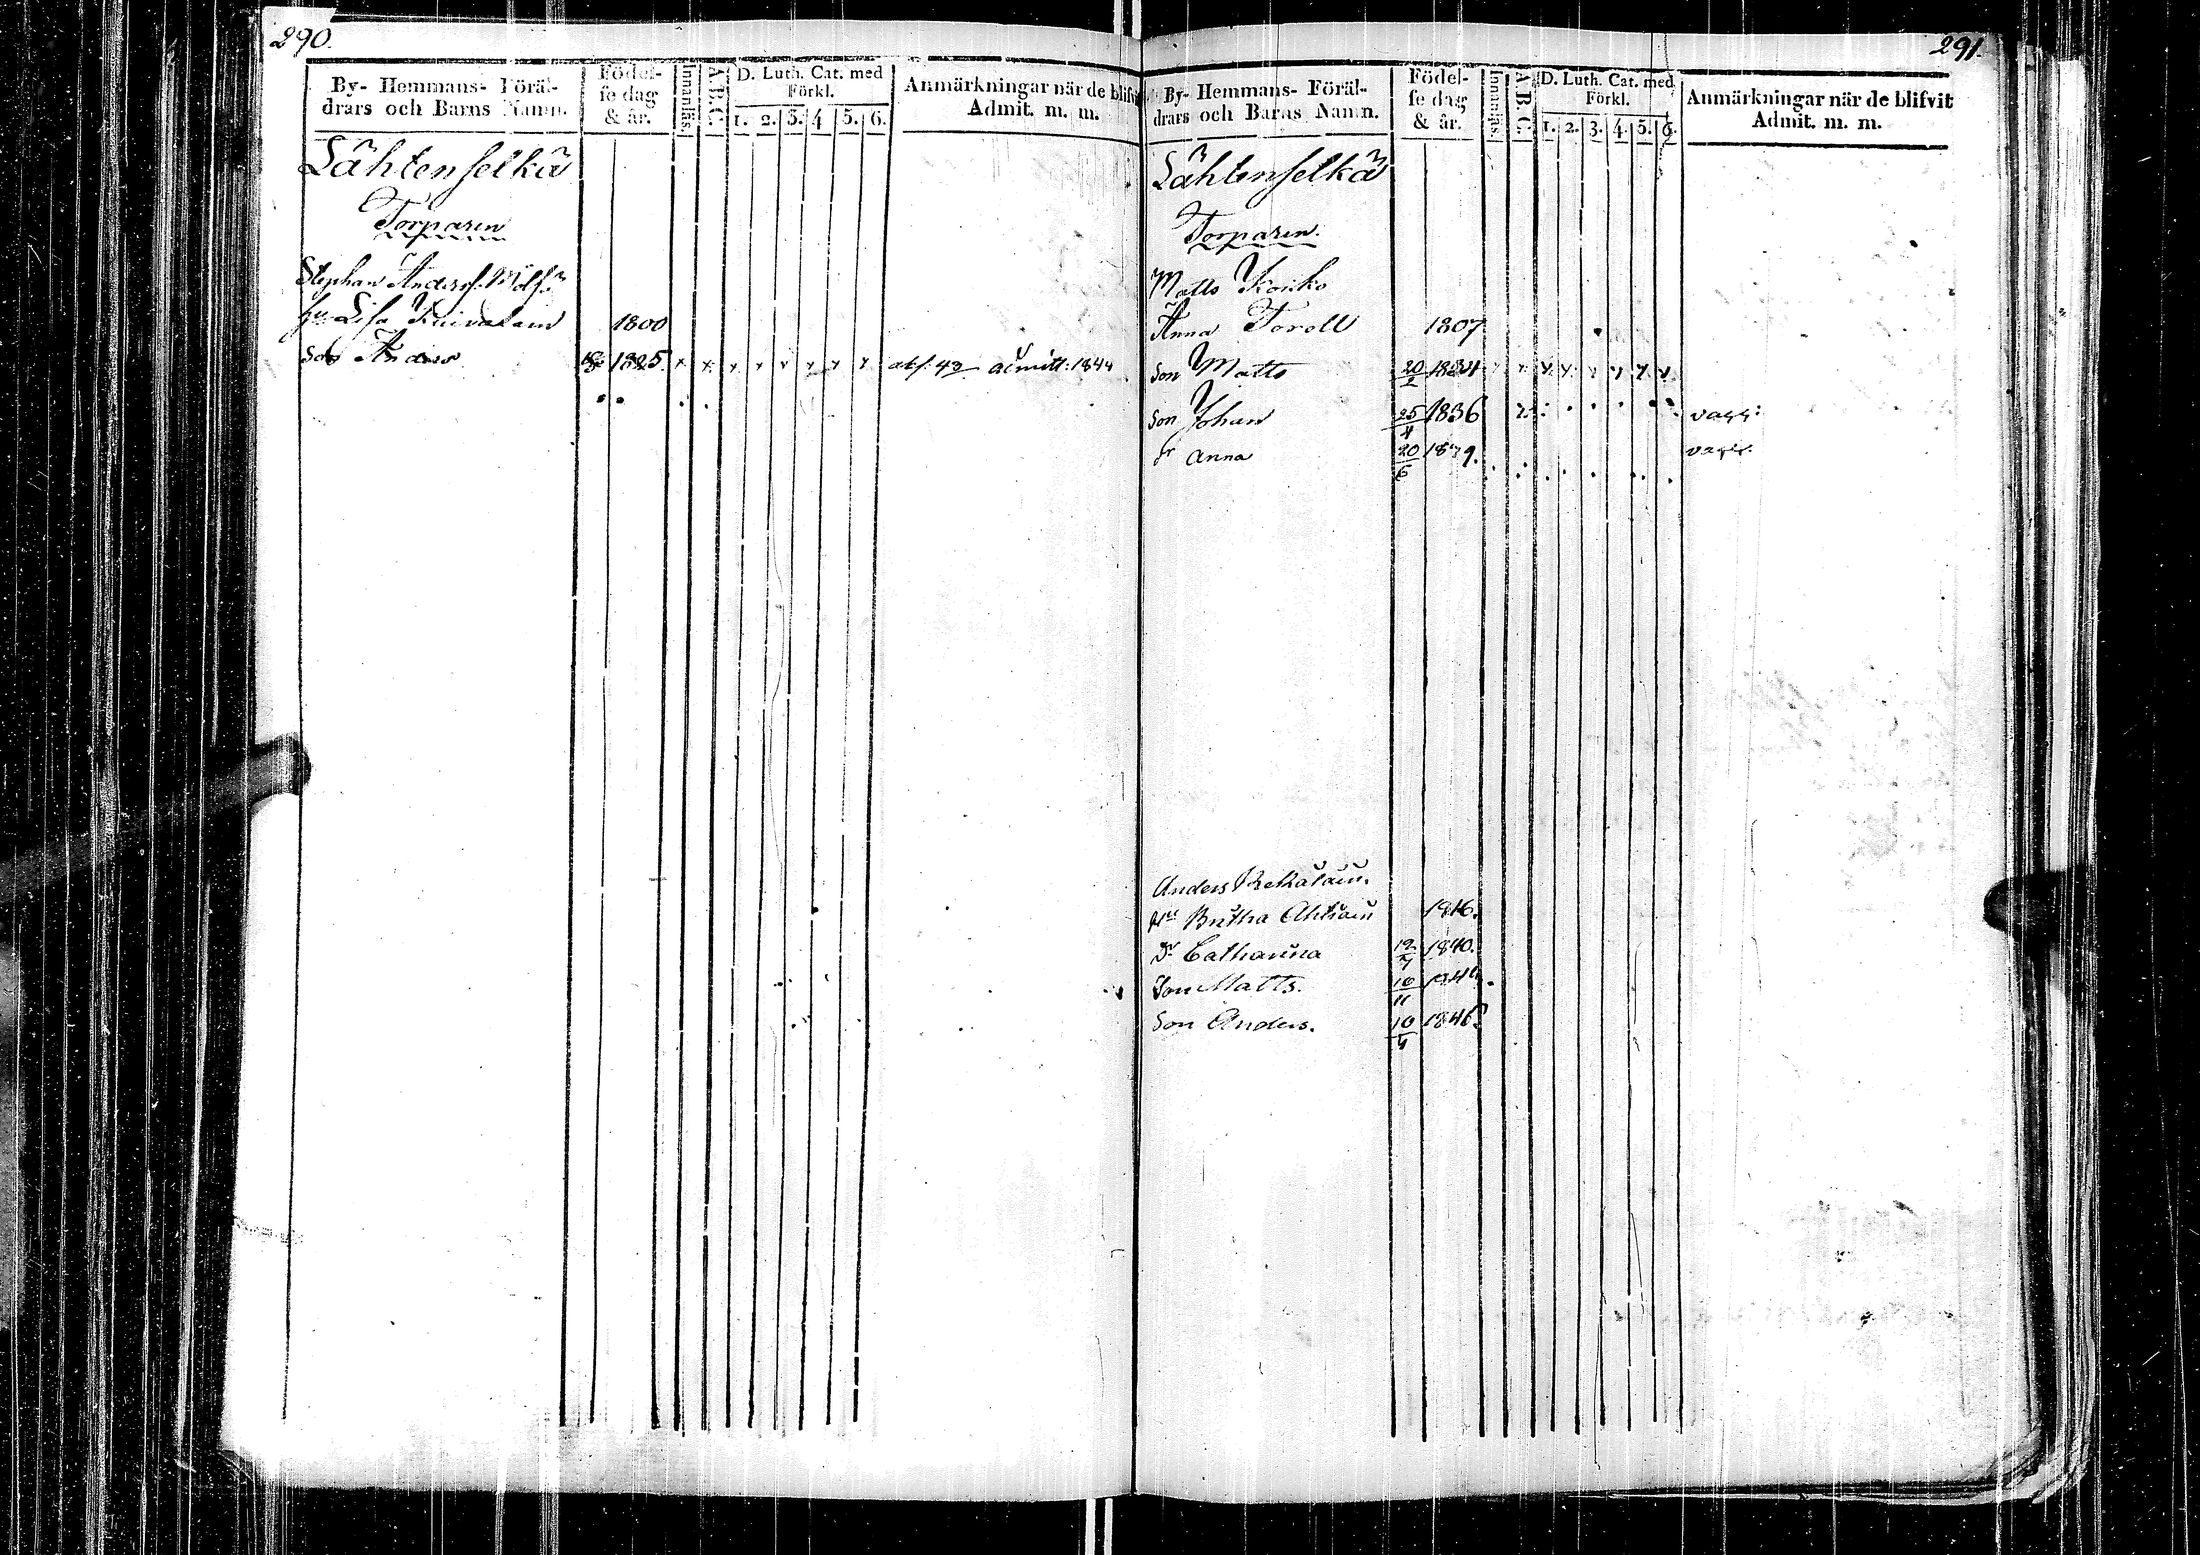 290.
By- Hemmans- Föräl-
drars och Barns Namn.
Födel-
se dag
& år.
Innanläs.
A.B.C.
D. Luth. Cat. med
Förkl.
1. 2. 3. 4 5. 6.
Anmärkningar när de blifvit
Admit. m. m.
Lähtenselkä
Torparen
Stephan Anderss.
hu Lisa 1800
Son Anders 1825 x x x x x x x x admitt: 1844
291.
By- Hemmans- Föräl-
drars och Barns Namn.
Födel-
se dag
& år.
Innanläs.
A.B.C.
D. Luth. Cat. med
Förkl.
1. 2. 3. 4. 5. 6.
Anmärkningar när de blifvit
Admit. m. m.
Lähtenselkä
Torparen.
Matts Koiko
Anna Torell 1807
Son Matts 20/2 1834 x x x x x x x x
Son Johan 25/4 1836 vacc:
Dr Anna 20/6 vacc:
Anders
Hu Britha Ahtiain 1816.
Dr Catharina 1840.
Son Matts. 10/11
Son Anders. 10/4 1846.